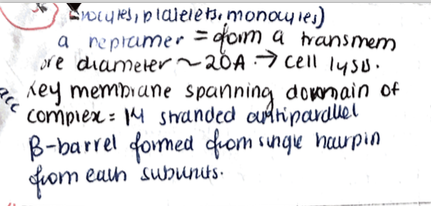 platelets, monocytes)
a heptamer = form a transmem
ore diameter ~ 20A. → cell lysis.
key membrane spanning domain of
complex = 14 stranded antiparallel
β-barrel formed from single hairpin
from each subunits.